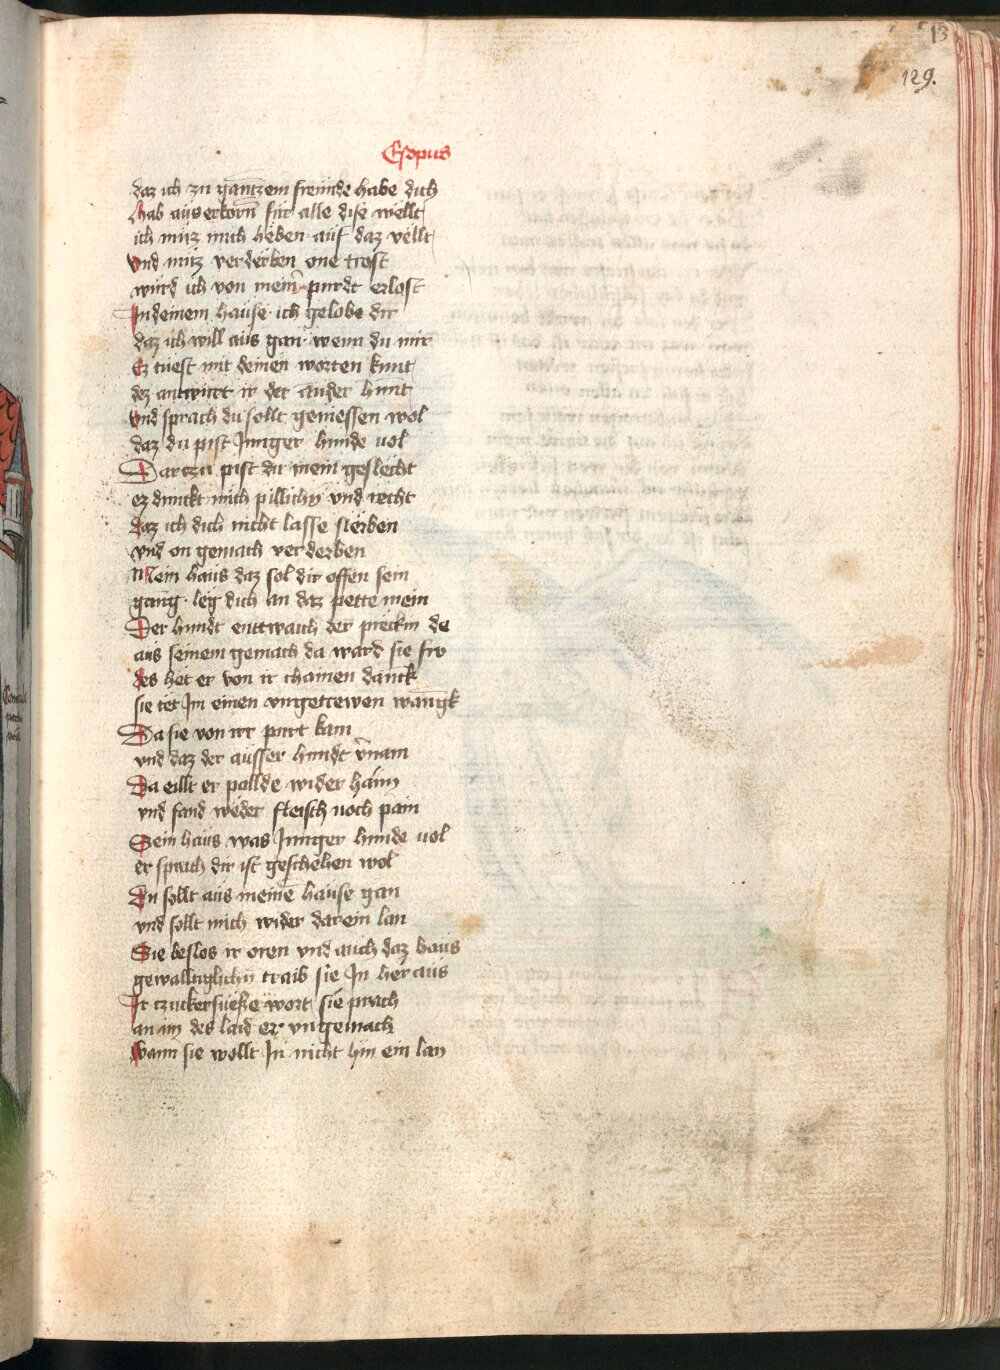 13
129.
Esopus
daz ich zu gantzem freunde habe dich
hab auserkorn für alle dise wellt
ich müz mich heben auf daz vellt
vnd müz verderben one trost
würd ich von mein purdt erlost
Indeinem hause ich gelobe dir
daz ich will aus gan wenn du mir
Ez tuest mit deinen worten kunt
dez antwurt ir der ander hunt
vnd sprach du sollt geniessen wol
daz du pist Junger hunde uol
Darczu pist du mein geslecht
ez dunckt mich pillichn vnd recht
daz ich dich nicht lasse sterben
vnd on gemach verderben
Mein haus daz sol dir offen sein
gang leg dich an daz pette mein
Der hundt enttwaich der preckin do
aus seinem gemach da ward sie fro
des het er von ir chainen danck
sie tet Jm einen vngetrewen wangk
Da sie von irr purt kam
vnd daz der ausser hundt v̄nam
Da eillt er pallde wider haim
vnd fand weder fleisch noch pain
Sein haus was Junger hunde uol
er sprach dir ist geschehen wol
Du sollt aus meinē hause gan
vnd sollt mich wider darein lan
Sie beslos ir oren vnd auch daz haus
gewalltiglichn traib sie Jn heraus
Ir czuckersueße wort sie prach
an im des laid er vngemach
wann sie wollt Jn nicht hin ein lan